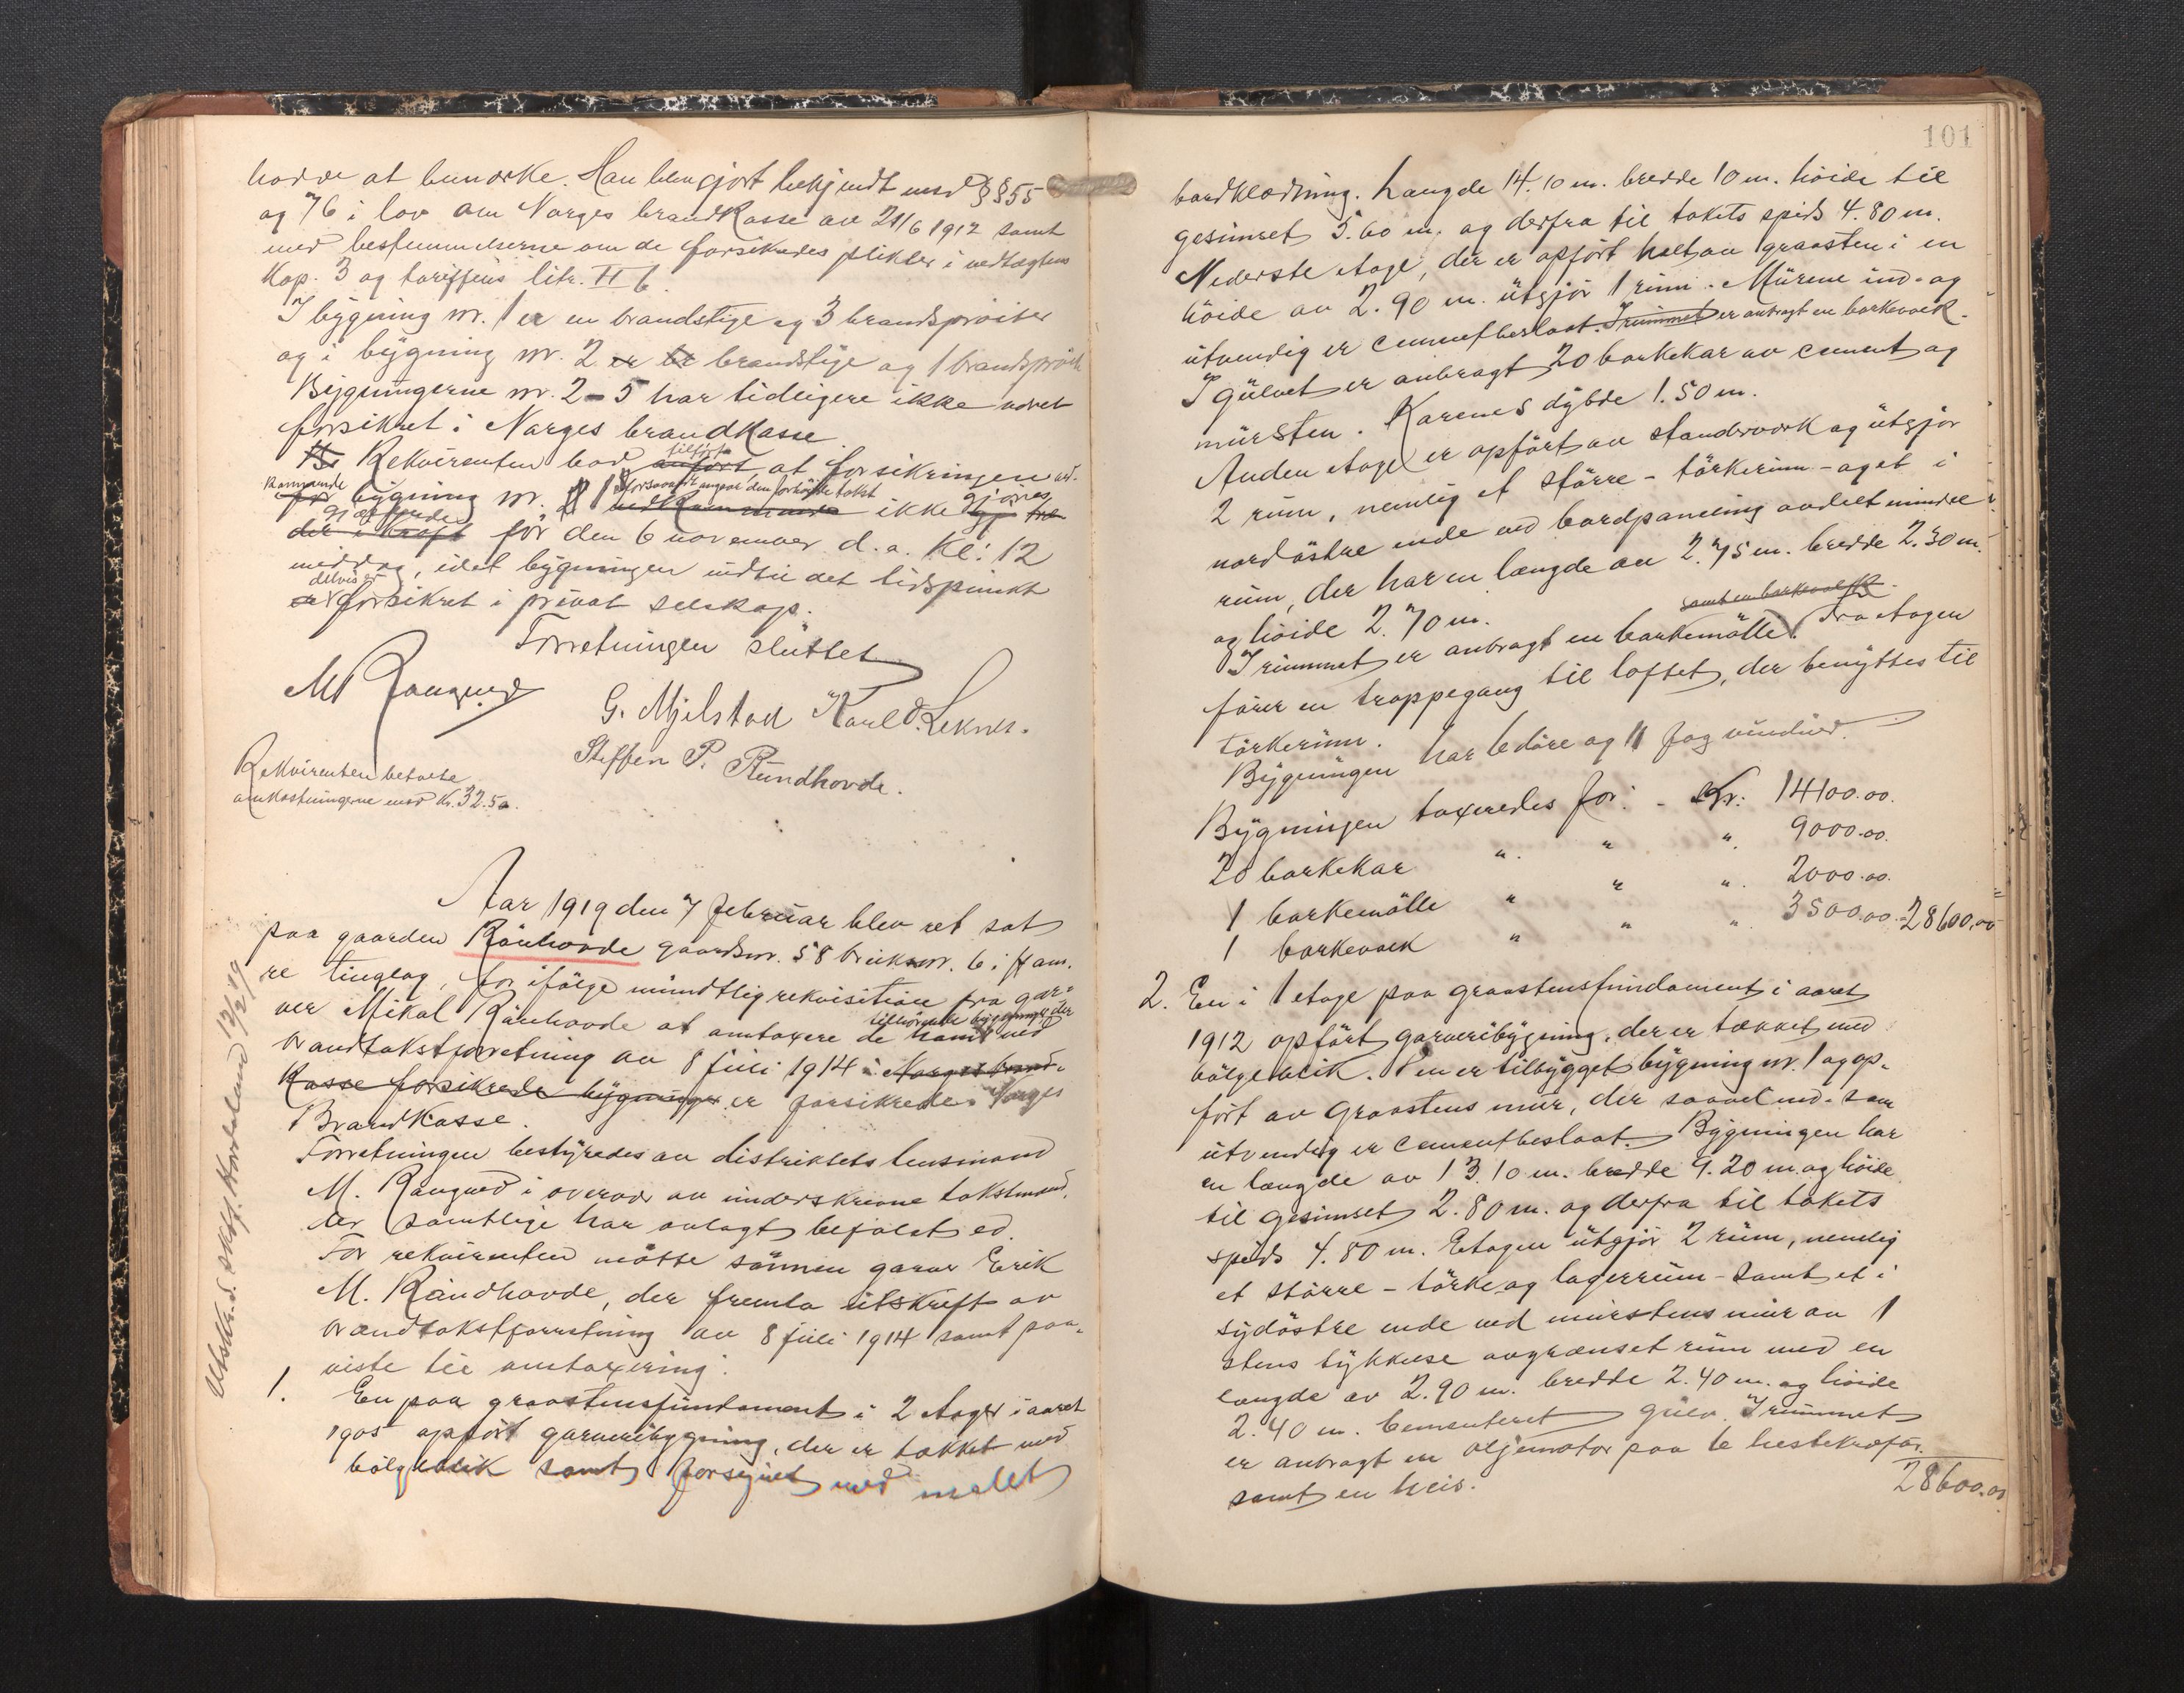 havde at bemerke. Han blev gjort bekjendt med §§ 55
og 76 i lov om Norges brandkasse av 21/6 1912 samt
med bestemmelserne om de forsikredes plikter i vedtægtens
Kap. 3 og tariffens litr. H 6.
I bygning nr. 1 er en brandstige og 3 brandsprøiter
og i bygning nr. 2 er brandstige og 1 brandsprøite
Bygningerne nr. 2-5 har tidligere ikke været
forsikret i Norges brandkasse.
Rekvirenten bad tilført at forsikringen ved-
kommende bygning nr. 1 forsaavidt angaar den forhøiede takst ikke gjøres
gjældende før den 6 november d.a. Kl: 12
middag, idet bygningen indtil det tidspunkt
delvis er forsikret i privat selskap.
Forretningen sluttet
M Rangnæs
G. Mjelstad Karl O. Leknes.
Steffen P. Rundhovde.
Rekvirenten betalte
omkostningerne med Kr. 32.50.
Aar 1919 den 7 februar blev ret sat
paa gaarden Rönhovde gaardsnr. 58 bruksnr. 6 i Ham.
re tinglag, for ifølge mundtlig rekvisition fra gar-
ver Mikal Rönhovde at omtaxere de ham tilhørende bygninger der ved
brandtakstforretning av 8 juli 1914 i Norges brand-
kasse forsikrede bygninger er forsikrede i Norges
Brandkasse.
Forretningen bestyredes av distriktets lensmand
M. Rangnæs i overvær av underskrevne takstmænd,
der samtlige har avlagt befalet ed.
For rekvirenten møtte sønnen garver Erik
M. Rändhovde, der fremla utskrift av
brandtakstforretning av 8 juli 1914 samt paa-
viste til omtaxering:
1. En paa graastensfundament i 2 etager i aaret
1905 opført garveribygning, der er tækket med
bølgeblik samt forsynet med malet
Utskr. t. skifj. Hordaland 12/2 19
101
bordklædning. Længde 14.10 m. bredde 10 m. høide til
gesimset 5.60 m. og derfra til takets spids 4.80 m.
Nederste etage, der er opført helt av graasten i en
høide av 2.90 m. utgjør 1 rum. Murene ind- og
utvendig er cementbeslaat. I rummet er anbragt en barkevæk.
I gulvet er anbragt 20 barkekar av cement og
mursten. Karenes dybde 1.50 m.
Anden etage er opført av standerverk og utgjør
2 rum, nemlig et større - tørkerum - og et i
nordøstre ende ved bordpaneling avdelt mindre
rum, der har en længde av 2.75 m. bredde 2.30 m.
og høide 2.70 m.
samt en barkevalse.
I rummet er anbragt en barkemølle. Fra etagen
fører en trappegang til loftet, der benyttes til
tørkerum.
Bygningen har 6 døre og 11 fag vinduer.
Bygningen taxeredes for: - Kr: 14100.00.
20 barkekar " " " 9000.00.
1 barkemølle " " " 2000.00.
1 barkevæk " " " 3500.00 = 28600.00
2. En i 1 etage paa graastensfundament i aaret
1912 opført garveribygning, der er tækket med
bølgeblik. Den er tilbygget bygning nr. 1 og op-
ført av graastens mur, der saavel ind- som
utvendig er cementbeslaat. Bygningen har
en længde av 13.10 m. bredde 9.20 m. og høide
til gesimset 2.80 m. og derfra til takets
spids 4.80 m. Etagen utgjør 2 rum, nemlig
et større - tørke og lagerrum - samt et i
sydøstre ende ved murstens mur av 1
stens tykkelse avgrænset rum med en
længde av 2.90 m. bredde 2.40 m. og høide
2.40 m. Cementeret gulv. I rummet
er anbragt en oljemotor paa 6 hestekræfter.
samt en heis.
28600.00